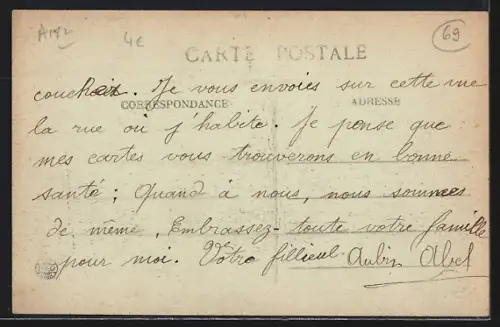 4€
69
CARTE POSTALE
coucher. Je vous envoies sur cette vue
CORRESPONDANCE ADRESSE
la rue où j'habite. Je pense que
mes cartes vous trouverons en bonne
santé; Quand à nous, nous sommes
de même, Embrassez- toute votre famille
pour moi. Votre fillieul Aubin Abel